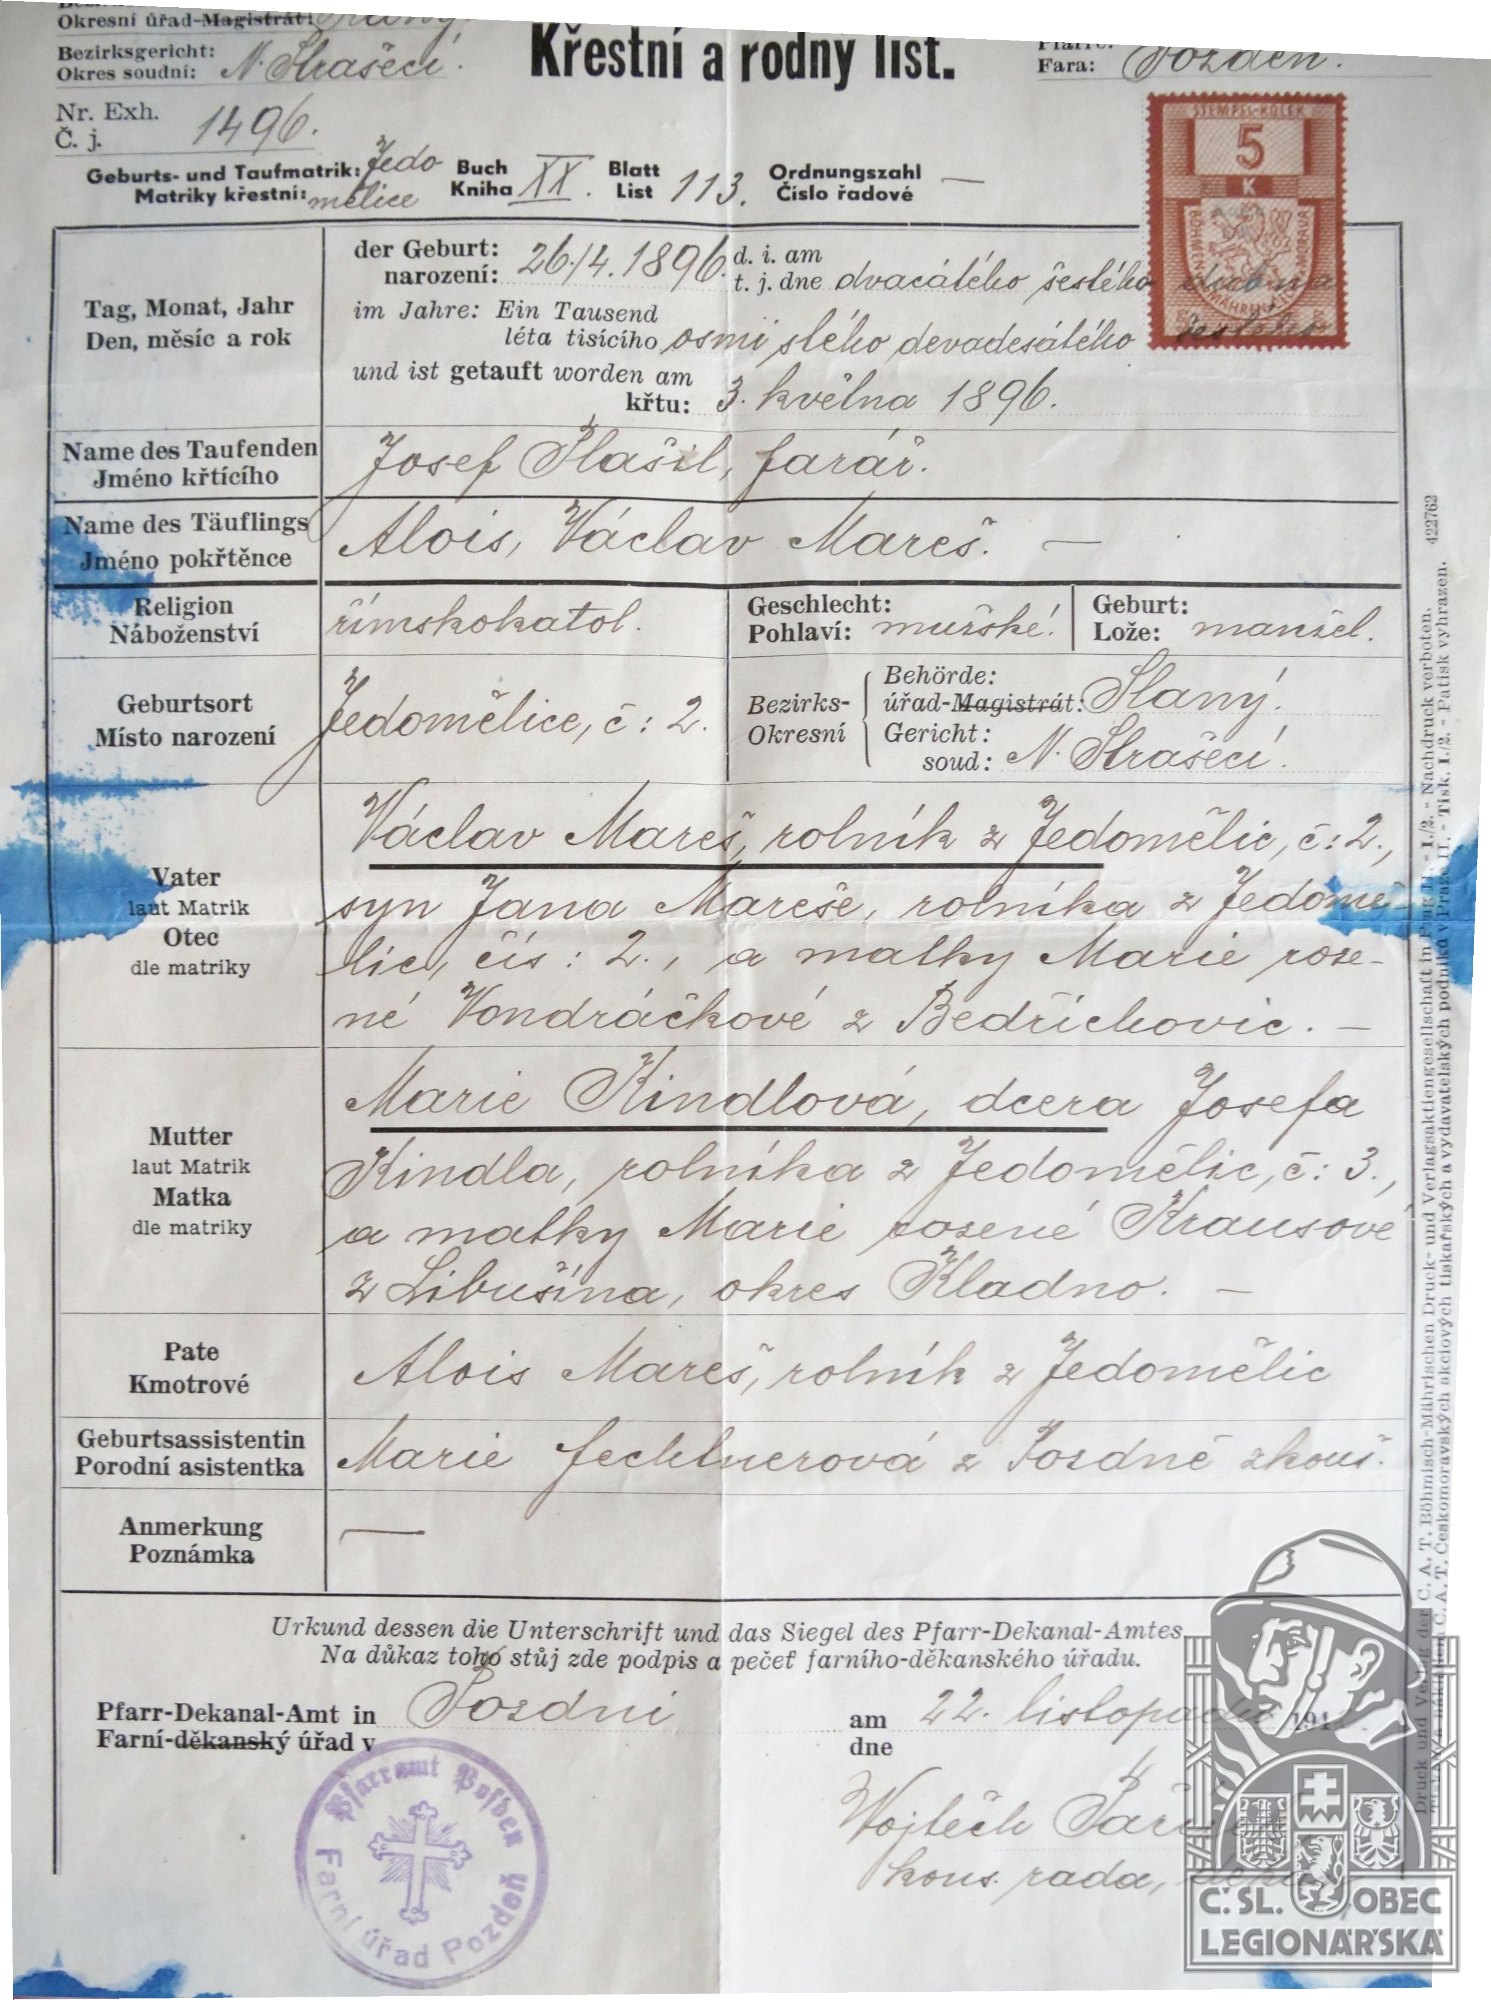 Okresní úřad-Magistrát: Slaný.
Bezirksgericht:
Okres soudní: N. Strašecí.
Křestní a rodný list.
Pfarre:
Fara: Pozdeň.
Nr. Exh.
Č. j. 1496.
Geburts- und Taufmatrik: Jedo
Matriky křestní: mělice
Buch
Kniha XX.
Blatt
List 113.
Ordnungszahl
Číslo řadové —
STEMPEL-KOLEK
5
K
BÖHMEN U. MÄHREN
Tag, Monat, Jahr
Den, měsíc a rok
der Geburt:
narození: 26./4. 1896. d. i. am
t. j. dne dvacátého šestého dubna
im Jahre: Ein Tausend
léta tisícího osmi stého devadesátého šestého
und ist getauft worden am
křtu: 3. května 1896.
Name des Taufenden
Jméno křtícího
Josef Plašil, farář.
Name des Täuflings
Jméno pokřtěnce
Alois, Václav Mareš. —
Religion
Náboženství
římskokatol.
Geschlecht:
Pohlaví: mužské.
Geburt:
Lože: manžel.
Geburtsort
Místo narození
Jedomělice, č: 2.
Bezirks-
Okresní
Behörde:
úřad-Magistrát: Slaný.
Gericht:
soud: N. Strašecí.
Vater
laut Matrik
Otec
dle matriky
Václav Mareš, rolník z Jedomělic, č: 2.,
syn Jana Mareše, rolníka z Jedomě-
lic, čís: 2., a matky Marie roze-
né Vondráčkové z Bedřichovic. —
Mutter
laut Matrik
Matka
dle matriky
Marie Kindlová, dcera Josefa
Kindla, rolníka z Jedomělic, č: 3.,
a matky Marie rozené Krausové
z Libušína, okres Kladno. —
Pate
Kmotrové
Alois Mareš, rolník z Jedomělic
Geburtsassistentin
Porodní asistentka
Marie Fechtnerová z Pozdně zkouš.
Anmerkung
Poznámka
—
Urkund dessen die Unterschrift und das Siegel des Pfarr-Dekanal-Amtes
Na důkaz toho stůj zde podpis a pečeť farního-děkanského úřadu.
Pfarr-Dekanal-Amt in
Farní-děkanský úřad v Pozdni
am
dne 22. listopadu 194
Vojtěch
kons. rada, děkan
Pfarramt Posden
Farní úřad Pozdeň
Druck und Verlag der C. A. T. Böhmisch-Mährischen Druck- und Verlagsaktiengesellschaft in Prag II. - I./2. - Nachdruck verboten. 422762
Tiskem a nákladem C. A. T. Českomoravských akciových tiskařských a vydavatelských podniků v Praze II. - Tisk. I./2. - Patisk vyhrazen.
Č. SL. OBEC
LEGIONÁŘSKÁ